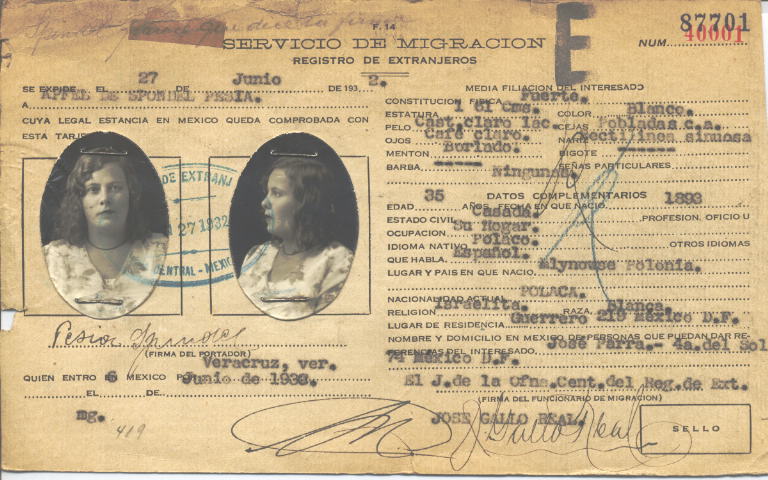 F. 14
SERVICIO DE MIGRACION
REGISTRO DE EXTRANJEROS
E
87701
NUM. 40001
SE EXPIDE EL 27 DE Junio DE 193 2.
A APFEL DE SPONDEL PESIA.
CUYA LEGAL ESTANCIA EN MEXICO QUEDA COMPROBADA CON
ESTA TARJE
DE EXTRANJ
27 1932
CENTRAL - MEXIC
Pesia Spindel
(FIRMA DEL PORTADOR)
Veracruz, ver.
QUIEN ENTRO A MEXICO P
6 Junio de 1930.
EL DE
mg.
419
MEDIA FILIACION DEL INTERESADO
CONSTITUCION FISICA Fuerte.
ESTATURA 1 61 Cms. COLOR Blanco.
PELO Cast. claro lac. CEJAS Pobladas c.a.
OJOS Café claro. NARIZ Rectilinea sinuosa
MENTON Borlado. BIGOTE -----
BARBA ----- SEÑAS PARTICULARES
Ningunas.
DATOS COMPLEMENTARIOS
EDAD 35 AÑOS, FECHA EN QUE NACIO 1893
ESTADO CIVIL Casada. PROFESION, OFICIO U
OCUPACION Su Hogar.
IDIOMA NATIVO Polaco. OTROS IDIOMAS
QUE HABLA Español.
LUGAR Y PAIS EN QUE NACIO. Mlynouse Polonia.
NACIONALIDAD ACTUAL POLACA.
RELIGION Israelita. RAZA Blanca.
LUGAR DE RESIDENCIA Guerrero 219 Mexico D.F.
NOMBRE Y DOMICILIO EN MEXICO DE PERSONAS QUE PUEDAN DAR RE-
FERENCIAS DEL INTERESADO. José Parra.- 4a. del Sol
74 Mexico D.F.
El J. de la Ofna. Cent. del Reg. de Ext.
(FIRMA DEL FUNCIONARIO DE MIGRACION)
JOSE GALLO REAL.
J. Gallo Real
SELLO